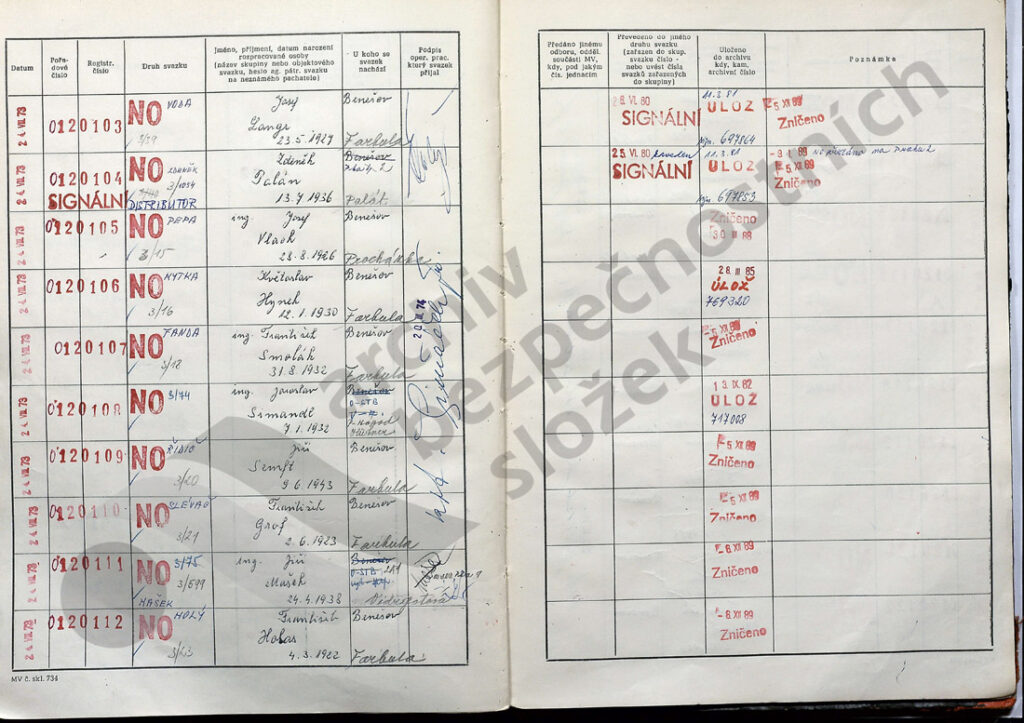 Datum
Pořa-
dové
číslo
Registr.
číslo
Druh svazku
Jméno, příjmení, datum narození
rozpracované osoby
(název skupiny nebo objektového
svazku, heslo ag. pátr. svazku
na neznámého pachatele)
U koho se
svazek
nachází
Podpis
oper. prac.
který svazek
přijal
24 VII. 73
0120103
NO
VODA
3/39
Josef
Langr
23.5.1927
Benešov
Farbula
24 VII. 73
0120104
SIGNÁLNÍ
NO
ZDENĚK
3/1034
DISTRIBUTOR
Zdeněk
Palán
13.7.1936
Benešov
Palát
24 VII. 73
0120105
NO
PEPA
3/15
ing. Josef
Vlach
28.8.1926
Benešov
Procházka
24 VII. 73
0120106
NO
KYTKA
3/16
Květoslav
Hynek
12.1.1930
Benešov
Farbula
24 VII. 73
0120107
NO
FANDA
3/18
ing. František
Smolák
31.8.1932
Benešov
Farbula
24 VII. 73
0120108
NO
S/74
ing. Jaroslav
Simandl
7.1.1932
Benešov
24 VII. 73
0120109
NO
ŘIDIČ
3/20
Jiří
Semft
9.6.1943
Benešov
Farbula
24 VII. 73
0120110
NO
SLÉVAČ
3/21
František
Grof
2.6.1923
Benešov
Farbula
24 VII. 73
0120111
NO
S/75
3/599
MAŠEK
ing. Jiří
Mašek
24.4.1938
Benešov
24 VII. 73
0120112
NO
HOLÝ
3/23
František
Holas
4.3.1922
Benešov
Farbula
MV č. skl. 734
Předáno jinému
odboru, odděl.
součásti MV,
kdy, pod jakým
čís. jednacím
Převedeno do jiného
druhu svazku
(zařazen do skup.
svazku číslo -
nebo uvést čísla
svazků zařazených
do skupiny)
Uloženo
do archivu
kdy, kam,
archivní číslo
Poznámka
SIGNÁLNÍ
11.3.81
ULOŽ
697864
-5 XII 89
Zničeno
25. VI. 80 převeden
SIGNÁLNÍ
11.3.81
ULOŽ
697853
Zničeno
Zničeno
28. III 85
ULOŽ
759320
-5 XII 89
Zničeno
13. IX. 82
ULOŽ
717008
-5 XII 89
Zničeno
-5 XII 89
Zničeno
-8 XII 89
Zničeno
-8 XII 89
Zničeno
archiv
bezpečnostních
složek